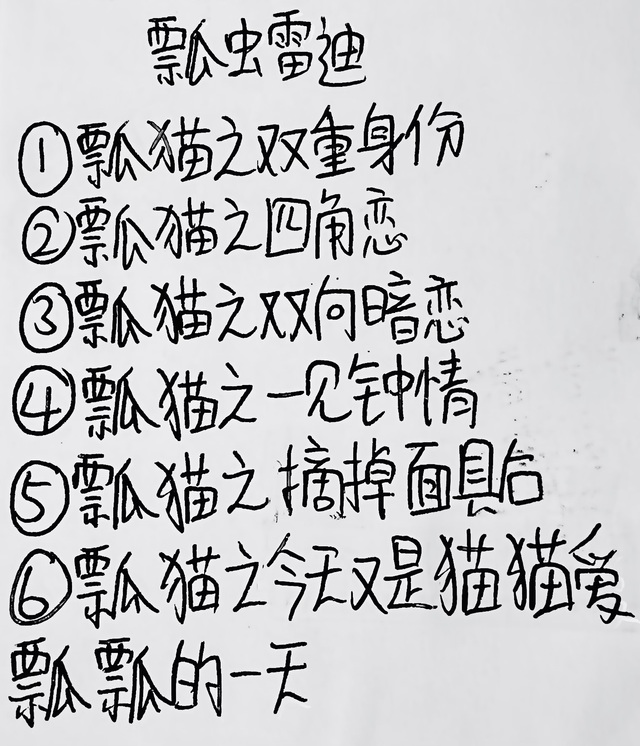 瓢虫雷迪
①瓢猫之双重身份
②瓢猫之四角恋
③瓢猫之双向暗恋
④瓢猫之一见钟情
⑤瓢猫之摘掉面具后
⑥瓢猫之今天又是猫猫爱
瓢瓢的一天